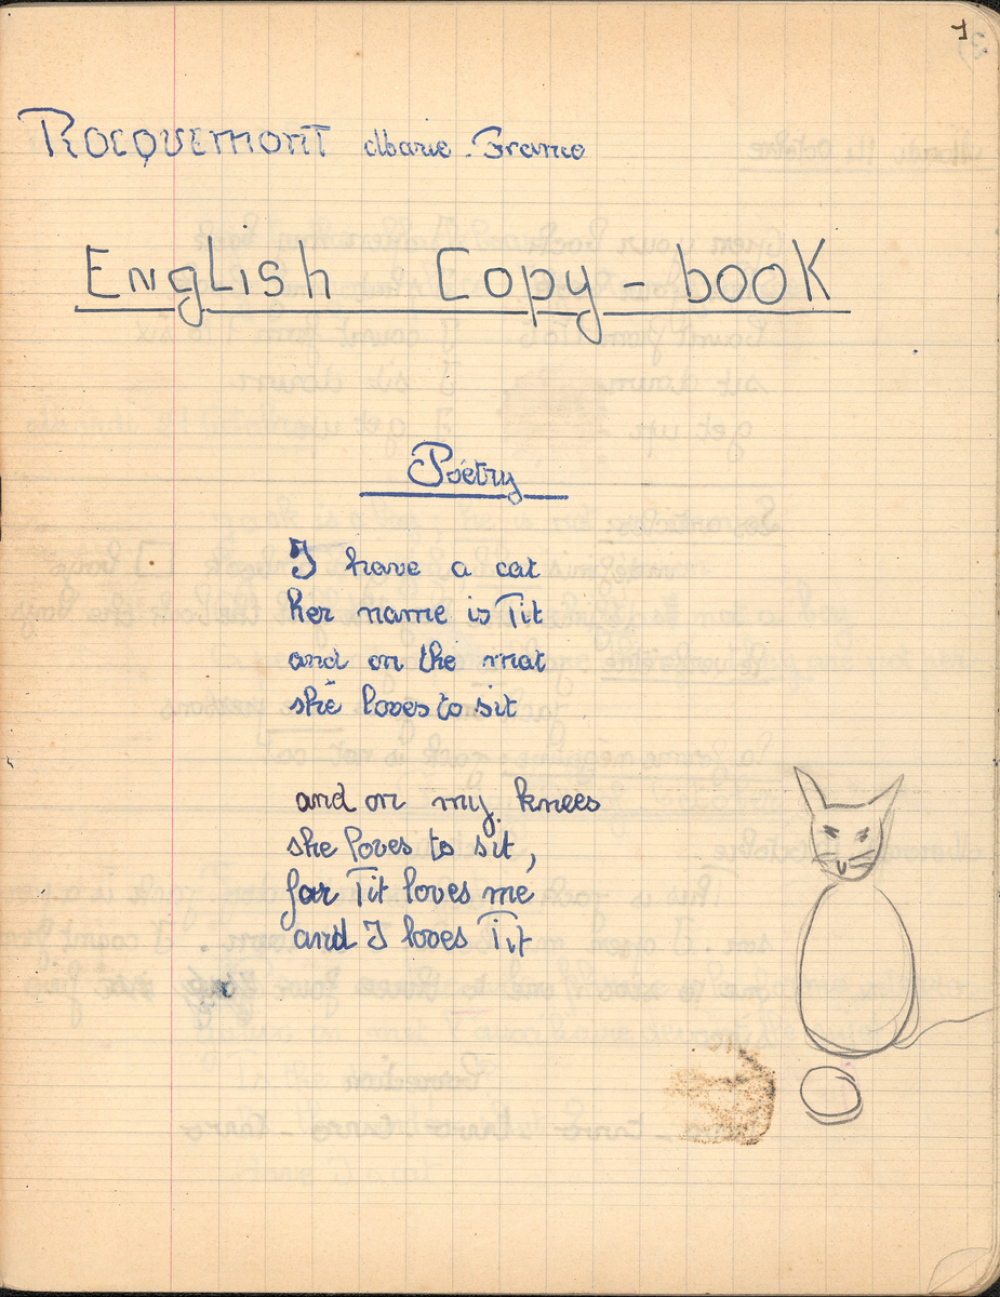 1
Rocquemont Marie-France
English Copy-book
Poétry
I have a cat
her name is Tit
and on the mat
she loves to sit
and on my knees
she loves to sit,
for Tit loves me
and I loves Tit